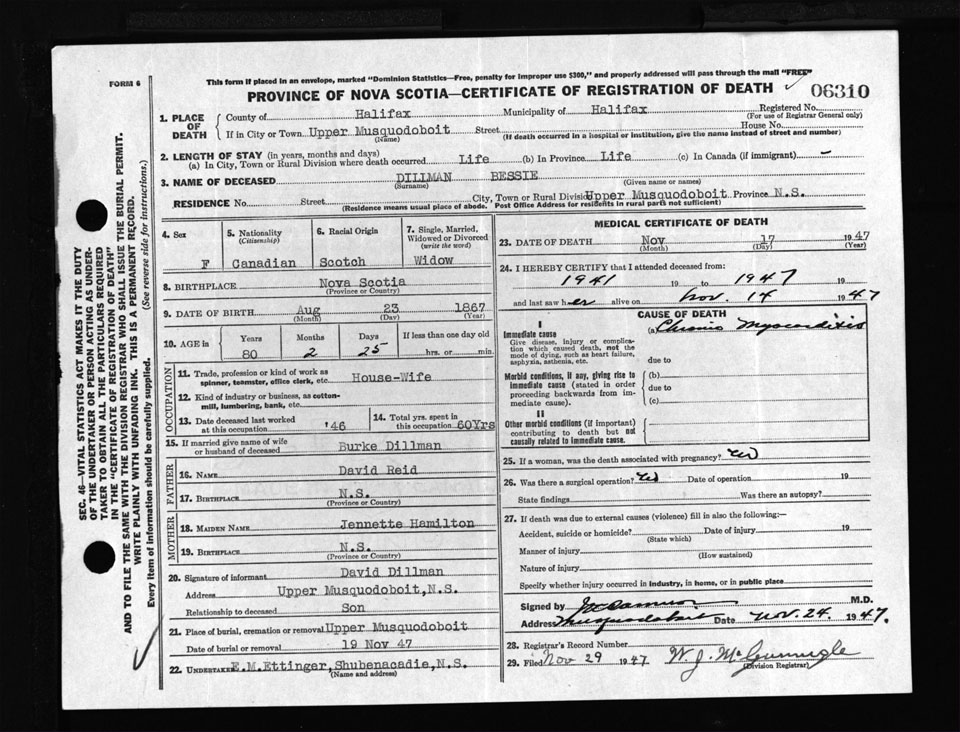 FORM 6
This form if placed in an envelope, marked "Dominion Statistics—Free, penalty for improper use $300," and properly addressed will pass through the mail "FREE"
PROVINCE OF NOVA SCOTIA—CERTIFICATE OF REGISTRATION OF DEATH
06310
1. PLACE OF DEATH
County of Halifax Municipality of Halifax Registered No.
(For use of Registrar General only)
If in City or Town Upper Musquodoboit Street House No.
(Name) (If death occurred in a hospital or institution, give the name instead of street and number)
2. LENGTH OF STAY (in years, months and days)
(a) In City, Town or Rural Division where death occurred Life (b) In Province Life (c) In Canada (if immigrant) —
3. NAME OF DECEASED DILLMAN BESSIE
(Surname) (Given name or names)
RESIDENCE No. Street City, Town or Rural Divisio Upper Musquodoboit Province N.S.
(Residence means usual place of abode. Post Office Address for residents in rural parts not sufficient)
4. Sex
F
5. Nationality
(Citizenship)
Canadian
6. Racial Origin
Scotch
7. Single, Married, Widowed or Divorced
(write the word)
Widow
8. BIRTHPLACE Nova Scotia
(Province or Country)
9. DATE OF BIRTH Aug 23 1867
(Month) (Day) (Year)
10. AGE in Years Months Days If less than one day old
80 2 25 hrs. or min.
OCCUPATION
11. Trade, profession or kind of work as spinner, teamster, office clerk, etc. House-Wife
12. Kind of industry or business, as cotton-mill, lumbering, bank, etc.
13. Date deceased last worked at this occupation '46
14. Total yrs. spent in this occupation 60Yrs
15. If married give name of wife or husband of deceased Burke Dillman
FATHER
16. Name David Reid
17. Birthplace N.S.
(Province or Country)
MOTHER
18. Maiden Name Jennette Hamilton
19. Birthplace N.S.
(Province or Country)
20. Signature of informant David Dillman
Address Upper Musquodoboit,N.S.
Relationship to deceased Son
21. Place of burial, cremation or removal Upper Musquodoboit
Date of burial or removal 19 Nov 47
22. Undertaker E.M.Ettinger,Shubenacadie,N.S.
(Name and address)
MEDICAL CERTIFICATE OF DEATH
23. DATE OF DEATH Nov 17 1947
(Month) (Day) (Year)
24. I HEREBY CERTIFY that I attended deceased from:
1941 19 to 1947 19
and last saw her alive on Nov. 14 1947
CAUSE OF DEATH
I
Immediate cause
Give disease, injury or complication which caused death, not the mode of dying, such as heart failure, asphyxia, asthenia, etc.
(a) Chronic Myocarditis
due to
Morbid conditions, if any, giving rise to immediate cause (stated in order proceeding backwards from immediate cause).
(b)
due to
(c)
II
Other morbid conditions (if important) contributing to death but not causally related to immediate cause.
25. If a woman, was the death associated with pregnancy?
26. Was there a surgical operation? Date of operation 19
State findings Was there an autopsy?
27. If death was due to external causes (violence) fill in also the following:—
Accident, suicide or homicide? Date of injury 19
(State which)
Manner of injury
(How sustained)
Nature of injury
Specify whether injury occurred in industry, in home, or in public place
Signed by M.D.
Address Musquodoboit Date Nov. 24. 1947.
28. Registrar's Record Number
29. Filed Nov 29 1947
(Division Registrar)
SEC. 46—VITAL STATISTICS ACT MAKES IT THE DUTY
OF THE UNDERTAKER OR PERSON ACTING AS UNDER-
TAKER TO OBTAIN ALL THE PARTICULARS REQUIRED
IN THE "CERTIFICATE OF REGISTRATION OF DEATH"
AND TO FILE THE SAME WITH THE DIVISION REGISTRAR WHO SHALL ISSUE THE BURIAL PERMIT.
WRITE PLAINLY WITH UNFADING INK. THIS IS A PERMANENT RECORD.
Every item of information should be carefully supplied. (See reverse side for instructions.)